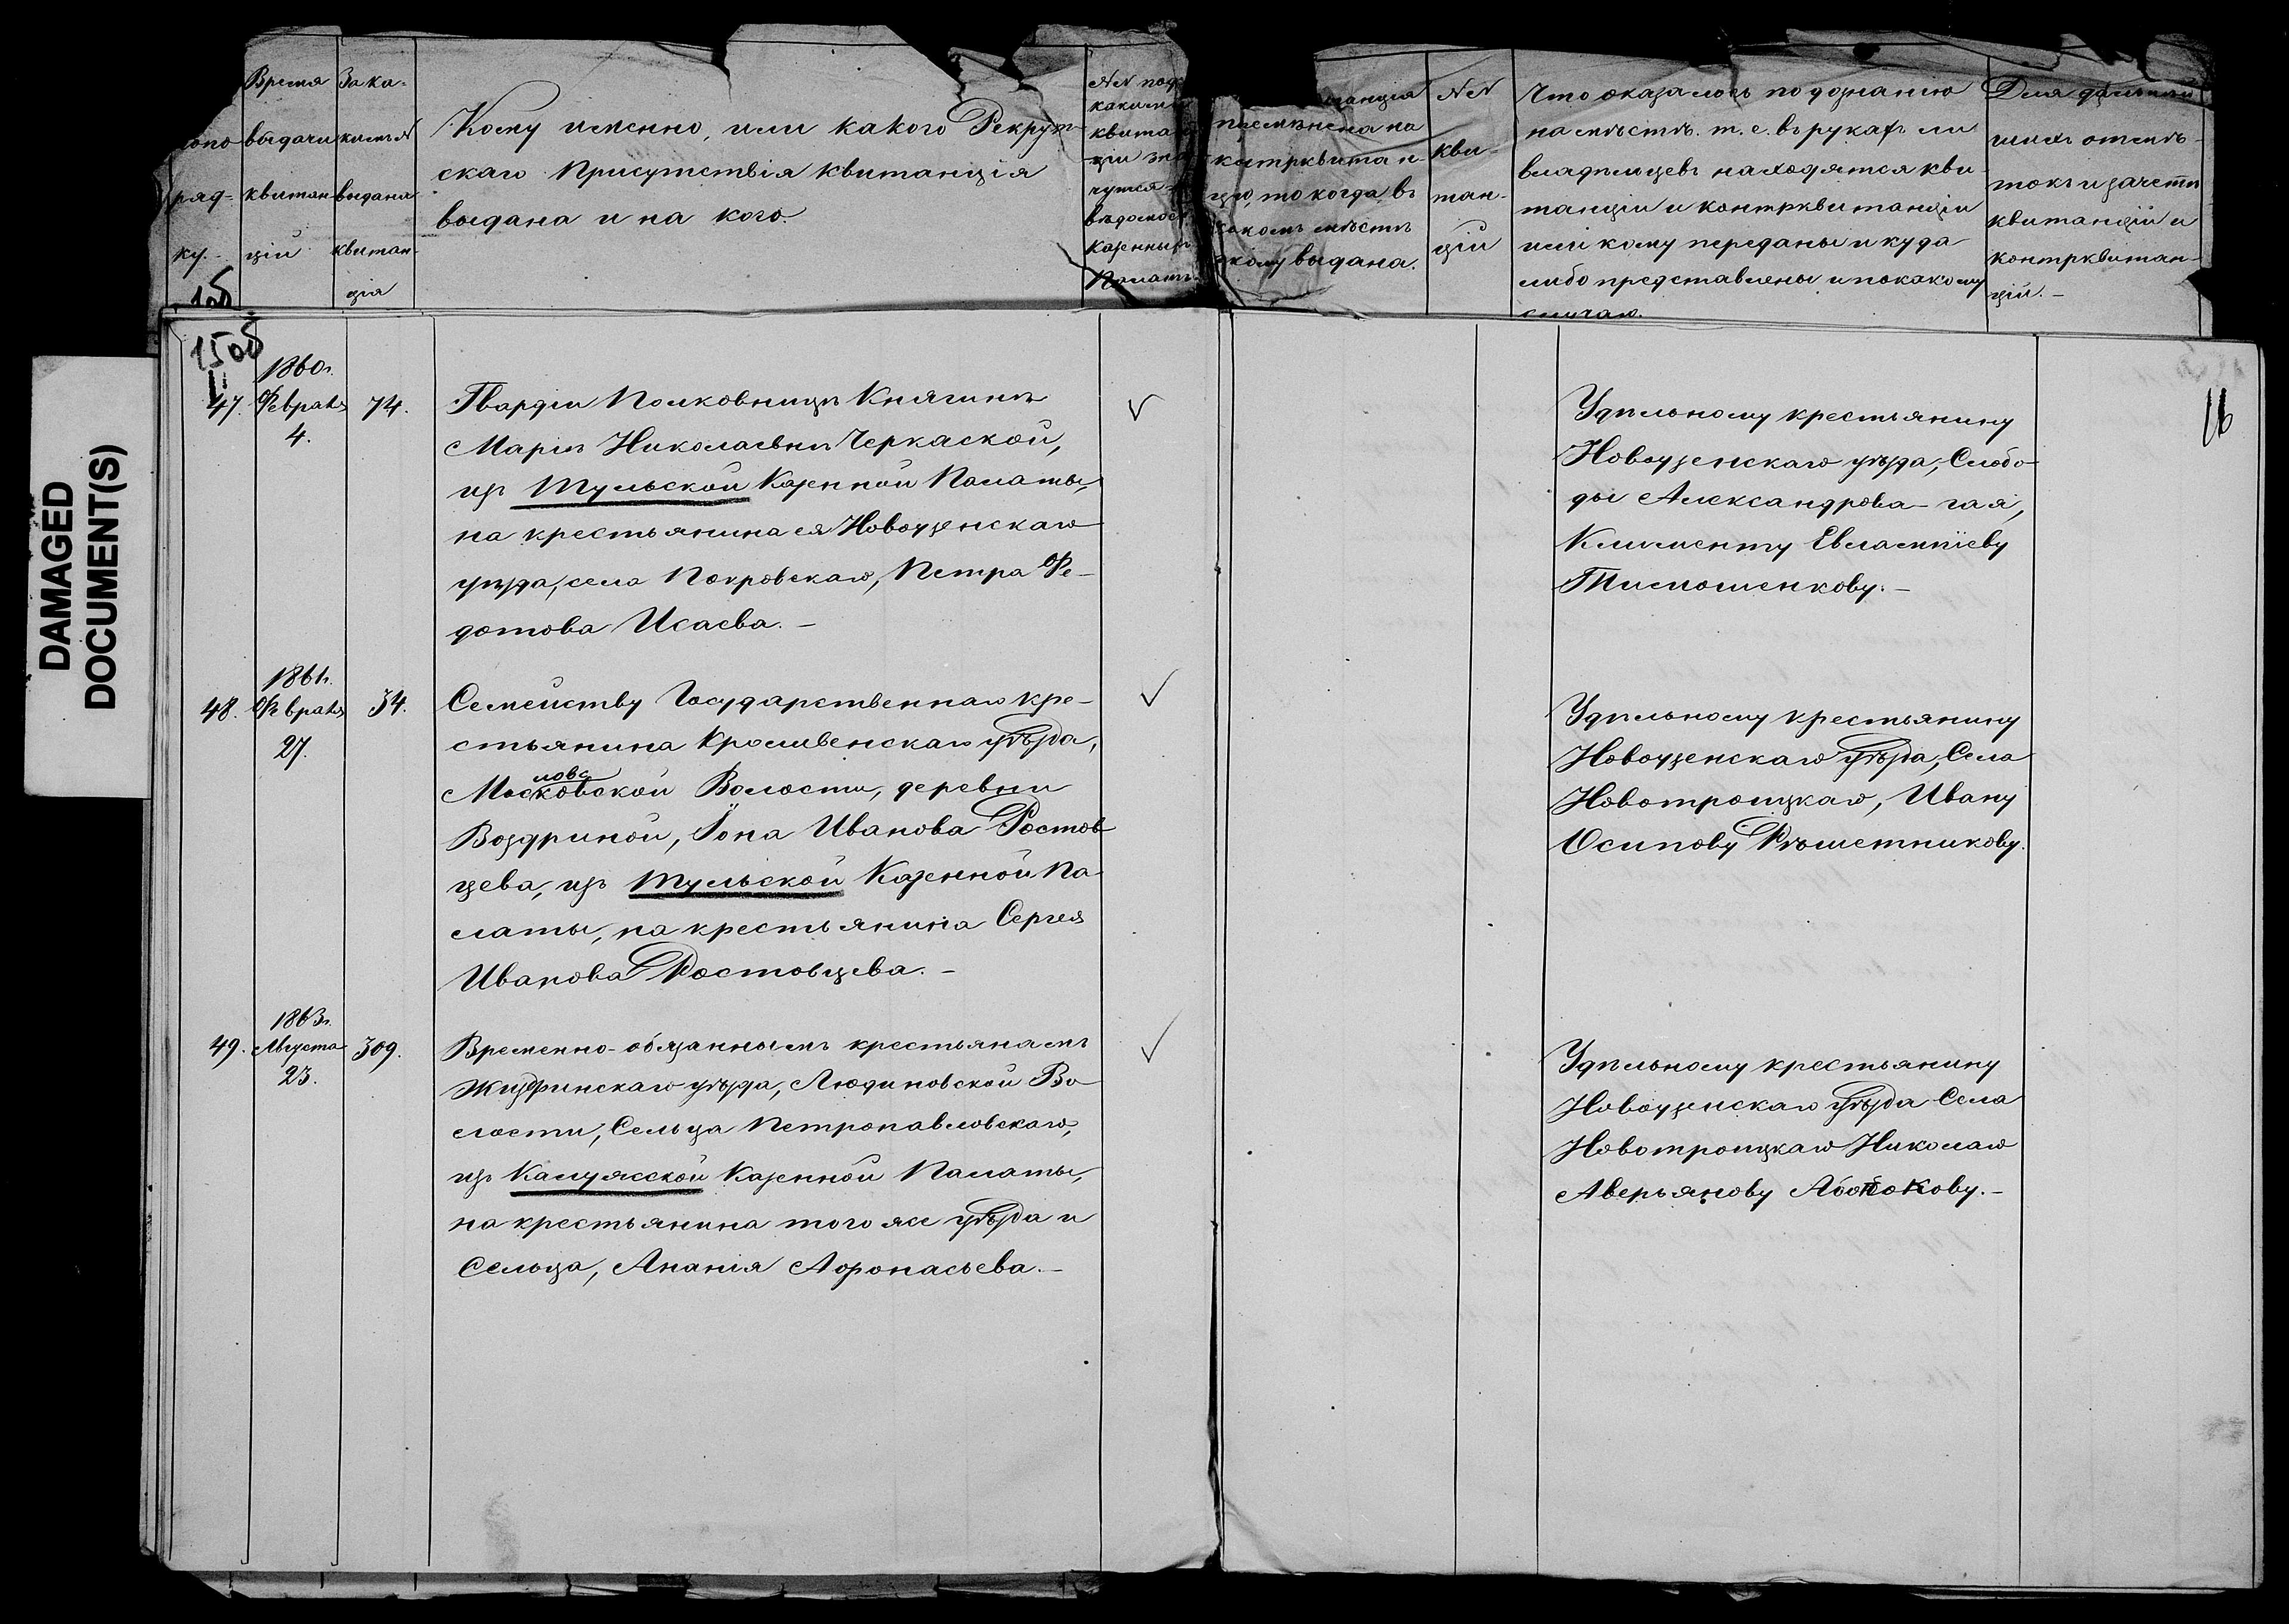 DAMAGED
DOCUMENT(S)
Время
выдачи
квитан
цій
ряд-
ку.
За ка-
кимъ №
выдана
квитан-
ція
Кому именно, или какого Рекрут-
скаго Присутствія квитанція
выдана и на кого
№№ под
какими
квитан
ціи
чутся
вѣдомос
Казенныхъ
Палатъ
промѣнена на
контрквитан-
цію, то когда, въ
какомъ мѣстѣ
и кому выдана.
№№
кви-
тан-
цій
Что оказалось по дознанію
на мѣстѣ. т. е. въ рукахъ ли
владѣльцевъ находятся кви-
танціи и контрквитанціи
или кому переданы и куда
либо представлены и по какому
случаю.
Для дальнѣй
шихъ отмѣ-
токъ и зачетѣ
квитанцій и
контрквитан-
цій.-
15об
15об
16
47.
1860г.
Февраля
4.
74.
Гвардіи Полковницѣ Княгинѣ
Маріѣ Николаевнѣ Черкаской,
изъ Тульской Казенной Палаты,
на крестьянина ея Новоузенскаго
уѣзда, села Покровскаго, Петра Фе-
дотова Исаева.-
Удѣльному крестьянину
Новоузенскаго уѣзда, Слобо-
ды Александрова-гая,
Клименту Евлампіеву
Тимошенкову.-
48.
1861г.
Февраля
27.
34.
Семейству Государственнаго кре-
стьянина Кромвенскаго уѣзда,
лова
Московской Волости, деревни
Воздриной, Іона Иванова Ростов
цева, изъ Тульской Казенной Па
латы, на крестьянина Сергея
Иванова Ростовцева.-
Удѣльному крестьянину
Новоузенскаго уѣзда, Села
Новотроицкаго, Ивану
Осипову Рѣшетникову.
49.
1863г.
Августа
23.
309.
Временно-обязаннымъ крестьянамъ
Жиздринскаго уѣзда, Людиновской Во-
лости, Сельца Петропавловскаго,
изъ Калужской Казенной Палаты,
на крестьянина того же уѣзда и
Сельца, Ананія Афонасьева.-
Удѣльному крестьянину
Новоузенскаго уѣзда Села
Новотроицкаго Николаю
Аверьянову